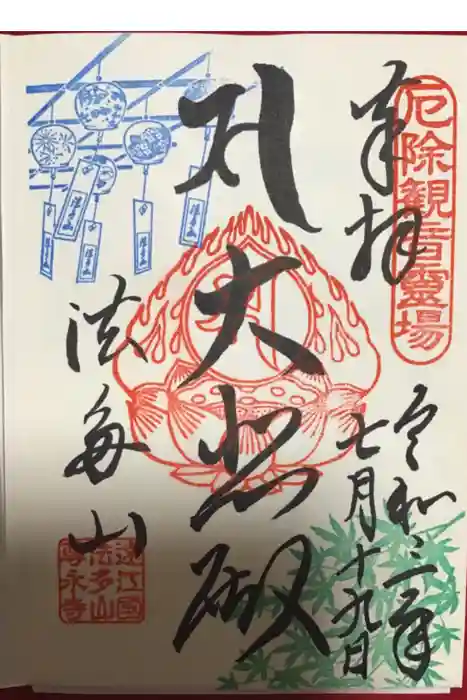 厄除観音霊場
奉拝
令和三年
七月十九日
大悲殿
法多山
遠江國
法多山
尊永寺